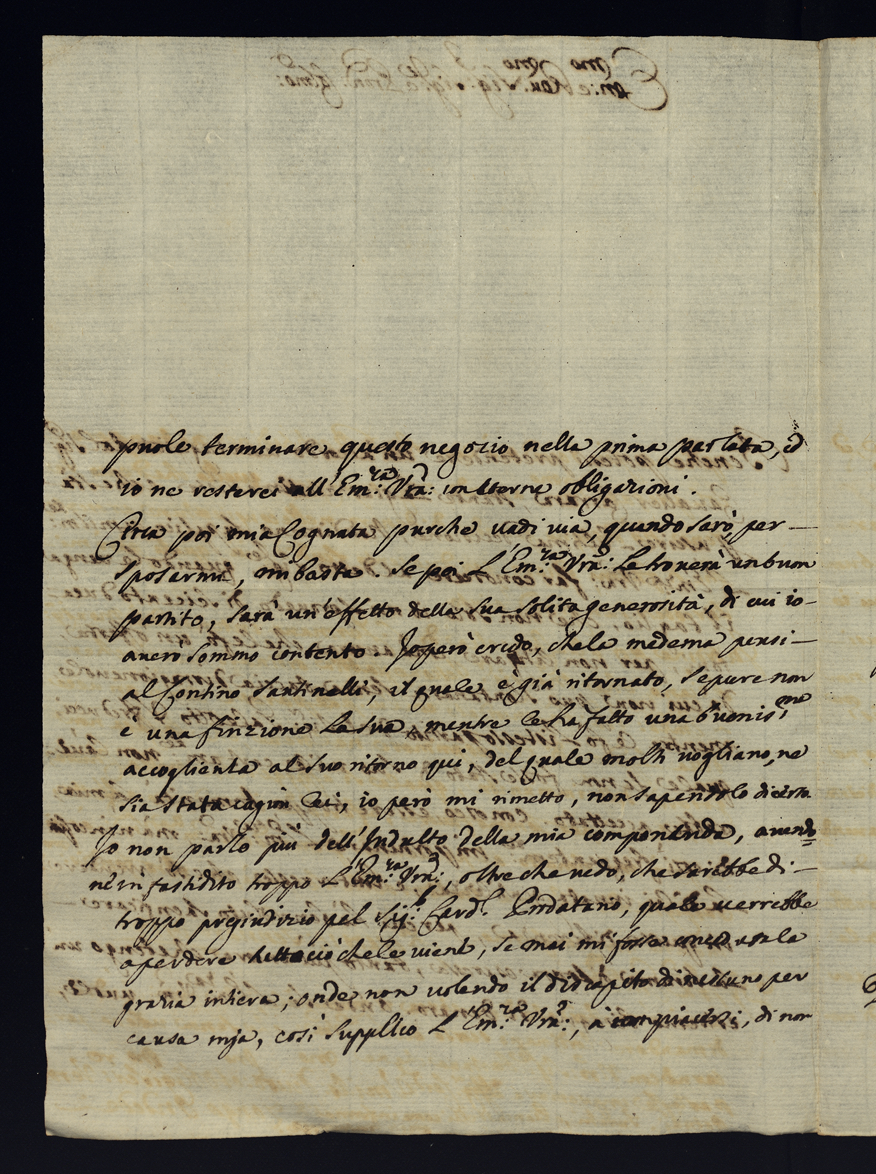 puole terminare questo negozio nella prima parlata, ed
io ne resterei all'Em:ra Vra: con eterne obligazioni.
Circa poi mia Cognata purche vadi via, quando sarò per
sposarmi, mi basta. Se poi L'Em:ra Vra: Le troverà un buon
partito, sarà un'effetto della sua solita generosità, di cui io
avero sommo contento. Io però credo, che la medema pensi
al Contino Santinelli, il quale è già ritornato, se pure non
è una finzione La sua, mentre Le ha fatto una buonissma
accoglienza al suo ritorno qui, del quale molti vogliano, ne
sia stata cagion Lei, io però mi rimetto, non sapendolo di certo
Io non parlo piu dell'Indulto della mia componenda, avendo=
ne infastidito troppo L'Em:ra Vra:, oltre che vedo, che sarebbe di
troppo pregiudizio pel Sig:r Card.l Prodatario, quale verrebbe
a perdere tutto ciò che le viene, se mai mi fosse la
grazia intiera; onde non volendo il discapito di nessuno per
causa mja, così supplico L'Em:ra Vra:, a compiacersi, di non